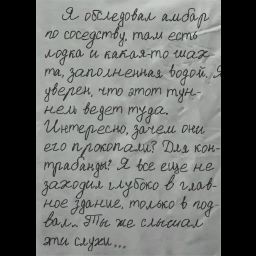 Я обследовал амбар
по соседству, там есть
лодка и какая-то шах-
та, заполненная водой. Я
уверен, что этот тун-
нель ведет туда.
Интересно, зачем они
его прокопали? Для кон-
трабанды? Я все еще не
заходил глубоко в глав-
ное здание, только в под
вал.. Ты же слышал
эти слухи...